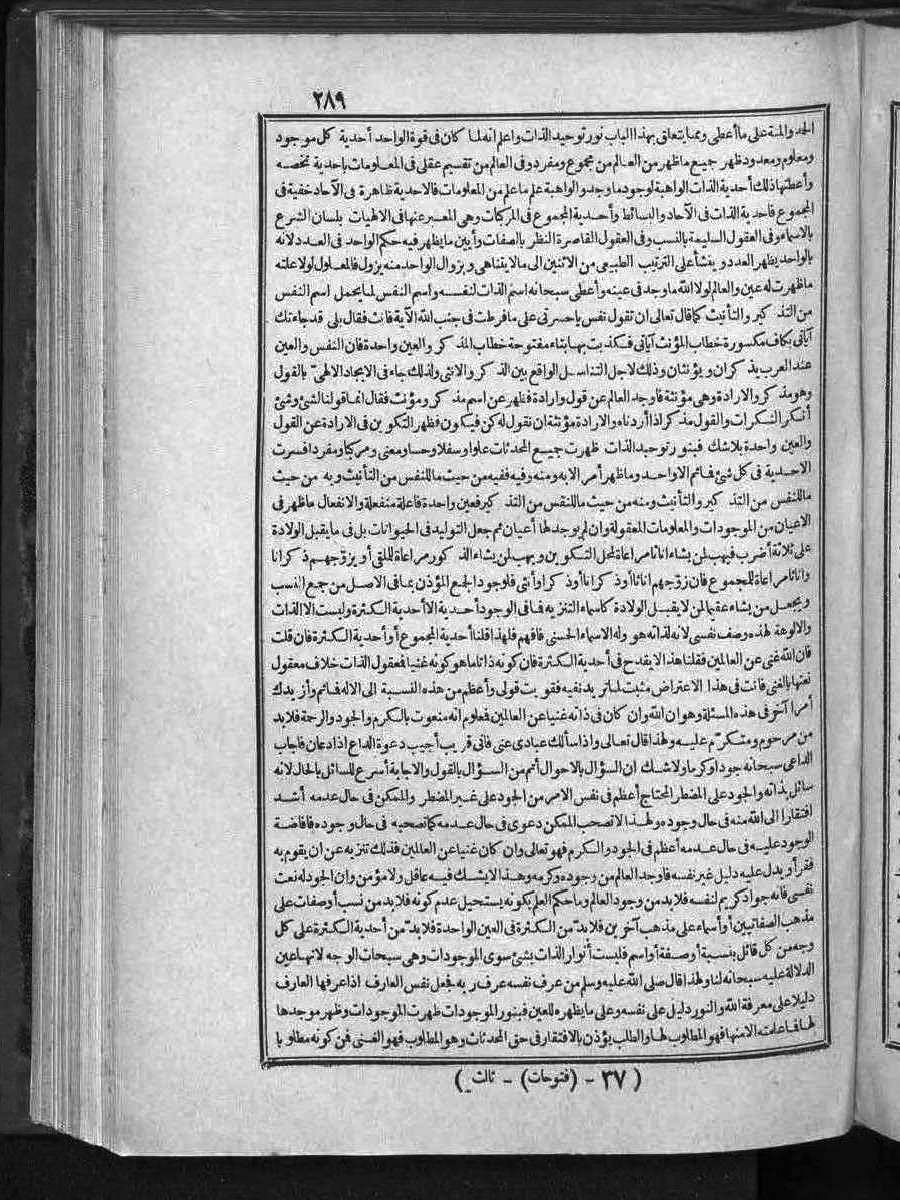 ٢٨٩
الحمد والمنة على ما أعطى ومما يتعلق بهذا الباب نور توحيد الذات واعلم انه لما كان فى قوة الواحد أحدية كل موجود
ومعلوم ومعدود ظهر جميع ماظهر من العالم من مجموع ومفرد وفى العالم من تقسيم عقلى فى المعلومات باحدية تخصه
وأعطتها ذلك أحدية الذات الواهبة لوجود ما وجد والواهبة علم ما علم من المعلومات فالاحدية ظاهرة فى الآحاد خفية فى
المجموع فاحدية الذات فى الآحاد والبسائط وأحدية المجموع فى المركبات وهى المعبر عنها فى الالهيات بلسان الشرع
بالاسماء وفى العقول السليمة بالنسب وفى العقول القاصرة النظر بالصفات وأبين ما يظهر فيه حكم الواحد فى العدد لانه
بالواحد يظهر العدد وينشأ على الترتيب الطبيعى من الاثنين الى مالا يتناهى وبزوال الواحد منه يزول فالمعلول لولا علته
ماظهرت له عين والعالم لولا الله ماوجد فى عينه وأعطى سبحانه اسم الذات لنفسه واسم النفس لما يحمل اسم النفس
من التذكير والتأنيث كما قال تعالى ان تقول نفس ياحسرتى على مافرطت فى جنب الله الآية فانث فقال بلى قد جاءتك
آياتى بكاف مكسورة خطاب المؤنث آياتى فكذبت بها بتاء مفتوحة خطاب المذكر والعين واحدة فان النفس والعين
عند العرب يذكران ويؤنثان وذلك لاجل التناسل الواقع بين الذكر والانثى ولذلك جاء فى الايجاد الالهىّ بالقول
وهو مذكر والارادة وهى مؤنثة فاوجد العالم عن قول وارادة فظهر عن اسم مذكر ومؤنث فقال انما قولنا لشئ وشئ
أنكر النكرات والقول مذكر اذا أردناه والارادة مؤنثة ان نقول له كن فيكون فظهر التكوين فى الارادة عن القول
والعين واحدة بلاشك فبنور توحيد الذات ظهرت جميع المحدثات علوا وسفلا وحسا ومعنى ومركبا ومفردا فسرت
الاحدية فى كل شئ فماثم الا واحد وماظهر أمر الابه ومنه وفيه ففيه من حيث ماللنفس من التأنيث وبه من حيث
ماللنفس من التذكير والتأنيث ومنه من حيث ماللنفس من التذكير فعين واحدة فاعلة منفعلة والانفعال ماظهر فى
الاعيان من الموجودات والمعلومات المعقولة وان لم يوجد لها أعيان ثم جعل التوليد فى الحيوانات بل فى مايقبل الولادة
على ثلاثة أضرب فيهب لمن يشاء اناثا مراعاة لمحل التكوين ويهب لمن يشاء الذكور مراعاة للملقى أو يزوّجهم ذكرانا
واناثا مراعاة للمجموع فان زوّجهم اناثا أو ذكرانا أو ذكرا وأنثى فلوجود الجمع المؤذن بما فى الاصل من جمع النسب
ويجعل من يشاء عقيما لمن لا يقبل الولادة كاسماء التنزيه فما فى الوجود أحدية الا أحدية الكثرة وليست الا الذات
والالوهة لهذه وصف نفسى لانه لذاته هو وله الاسماء الحسنى فافهم فلهذا قلنا أحدية المجموع أو أحدية الكثرة فان قلت
فان الله غنى عن العالمين فقلنا هذا لا يقدح فى أحدية الكثرة فان كونه ذاتا ماهو كونه غنيا فمعقول الذات خلاف معقول
نعتها بالغنى فانت فى هذا الاعتراض مثبت لما تريد نفيه فقويت قولى وأعظم من هذه النسبة الى الاله فماثم وأزيدك
أمرا آخر فى هذه المسئلة وهو ان الله وان كان فى ذاته غنيا عن العالمين فمعلوم انه منعوت بالكرم والجود والرحمة فلابد
من مرحوم ومتكرّم عليه ولهذا قال تعالى واذا سألك عبادى عنى فانى قريب أجيب دعوة الداع اذا دعان فاجاب
الداعى سبحانه جودا وكرما ولاشك ان السؤال بالاحوال أتم من السؤال بالقول والاجابة أسرع للسائل بالحال لانه
سائل بذاته والجود على المضطر المحتاج أعظم فى نفس الامر من الجود على غير المضطر والممكن فى حال عدمه أشد
افتقارا الى الله منه فى حال وجوده ولهذا لا تصحب الممكن دعوى فى حال عدمه كما تصحبه فى حال وجوده فافاضة
الوجود عليه فى حال عدمه أعظم فى الجود والكرم فهو تعالى وان كان غنيا عن العالمين فذلك تنزيه عن ان يقوم به
فقر أو يدل عليه دليل غير نفسه فاوجد العالم من جوده وكرمه وهذا لا يشك فيه عاقل ولا مؤمن وان الجود له نعت
نفسى فانه جواد كريم لنفسه فلابد من وجود العالم وما حكم العلم بكونه يستحيل عدم كونه فلابد من نسب أو صفات على
مذهب الصفاتيين أو أسماء على مذهب آخرين فلابدّ من الكثرة فى العين الواحدة فلابدّ من أحدية الكثرة على كل
وجه من كل قائل بنسبة أو صفة أو اسم فليست أنوار الذات بشئ سوى الموجودات وهى سبحات الوجه لانها عين
الدلالة عليه سبحانه لنا ولهذا قال صلى الله عليه وسلم من عرف نفسه عرف ربه فجعل نفس العارف اذا عرفها العارف
دليلا على معرفة الله والنور دليل على نفسه وعلى مايظهره للعين فبنور الموجودات ظهرت الموجودات وظهر موجدها
لها فما علمته الا منها فهو المطلوب لها والطلب يؤذن بالافتقار فى حق المحدثات وهو المطلوب فهو الغنى فمن كونه مطلوبا
( ٣٧ - (فتوحات) - ثالث )